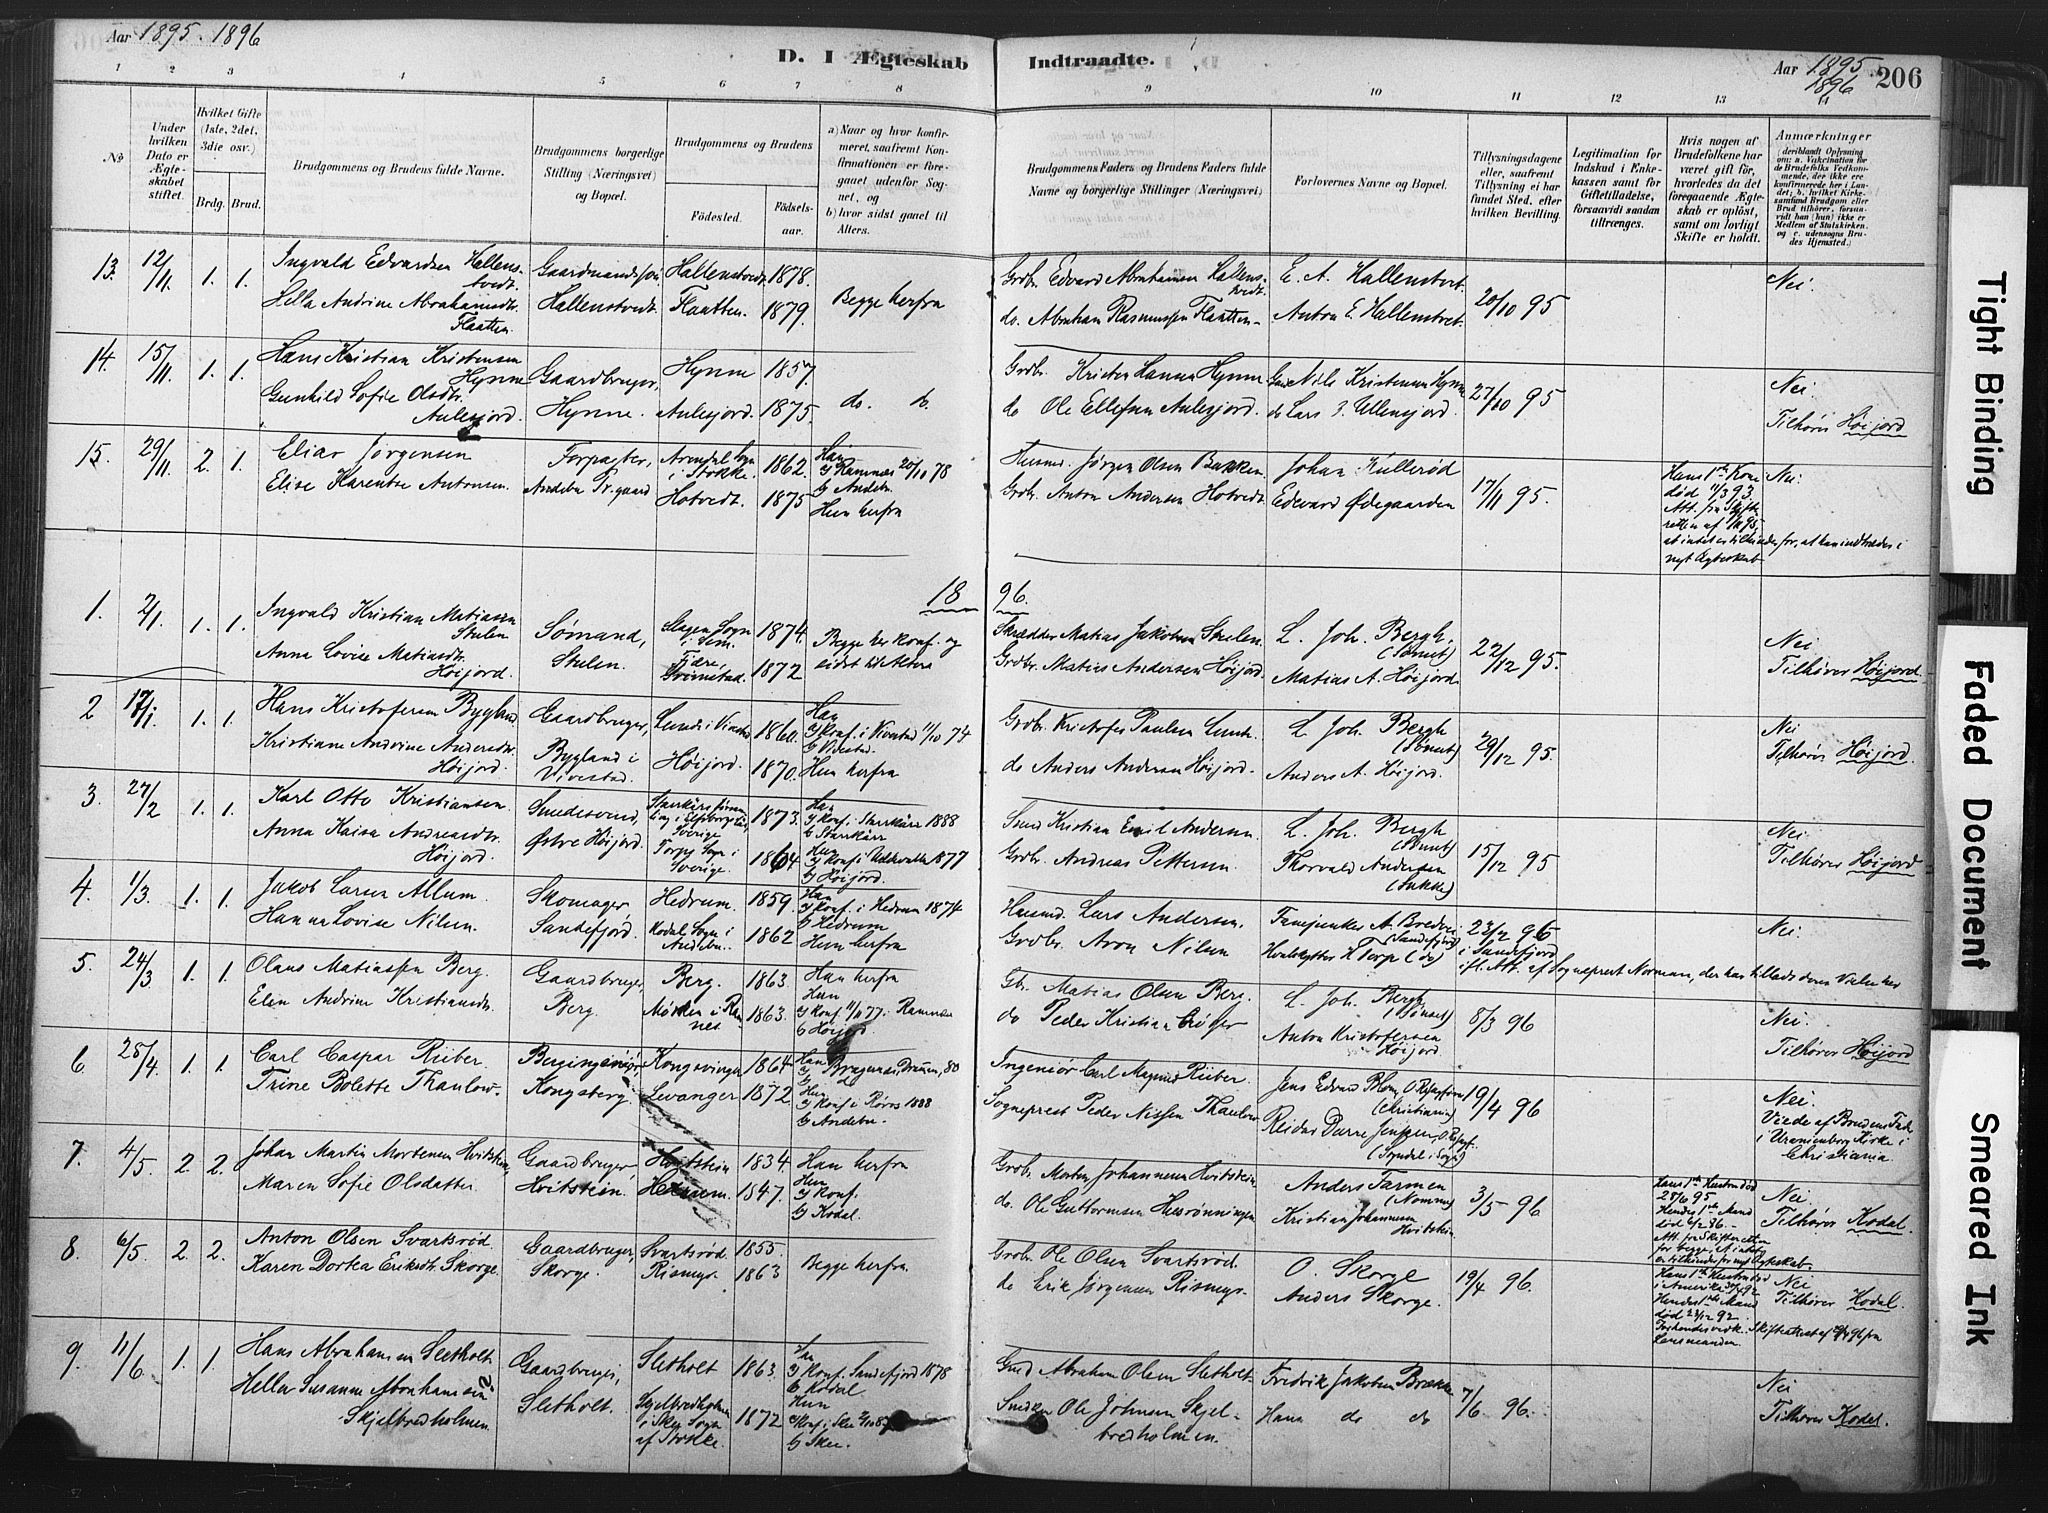 Aar 1895. 1896
D. I Ægteskab Indtraadte.
Aar 1895
1896
206
1 2 3 4 5 6 7 8 9 10 11 12 13 14
No
Under hvilken Dato er Ægteskabet stiftet.
Hvilket Gifte (1ste, 2det, 3die osv.)
Brdg. Brud.
Brudgommens og Brudens fulde Navne.
Brudgommens borgerlige Stilling (Næringsvei) og Bopæl.
Brudgommens og Brudens
Födested.
Födselsaar.
a) Naar og hvor konfirmeret, saafremt Konfirmationen er foregaaet udenfor Sognet, og
b) hvor sidst gaaet til Alters.
Brudgommens Faders og Brudens Faders fulde Navne og borgerlige Stillinger (Næringsvei)
Forlovernes Navne og Bopæl.
Tillysningsdagene eller, saafremt Tillysning ei har fundet Sted, efter hvilken Bevilling.
Legitimation for Indskud i Enkekassen samt for Giftetilladelse, forsaavidt saadan tiltrænges.
Hvis nogen af Brudefolkene har været gift før, hvorledes da det foregaaende Ægteskab er oplöst, samt om lovligt Skifte er holdt.
Anmærkninger
(deriblandt Oplysning om: a. Vakcination for de Brudefolks Vedkommende, der ikke ere konfirmerede her i Landet; b. hvilket Kirkesamfund Brudgom eller Brud tilhörer, forsaavidt han (hun) ikke er Medlem af Statskirken, og c. udensogns Brudes Hjemsted.)
13. 12/11 1. 1. Ingvald Edvardsen Hallenstvedt. Gaardmandssøn Hallenstvedt 1878. Begge herfra Grdbr. Edvard Abrahamsen Hallenstvedt. E. A. Hallenstvet. 20/10 95 Nei.
Andrine Abrahamsdtr. Flaatten. Hallenstvedt. Flaatten. 1879. do. Abraham Rasmussen Flaatten Anton E. Hallenstvet.
14. 15/11 1. 1. Hans Kristian Kristensen Hynne Gaardbruger, Hynne 1857. do. Grdbr. Hansen Hynne Nils Kristensen Hynne 27/10 95 Nei
Gunhild Sofie Olsdtr. Aulesjord. Hynne. Aulesjord. 1875. do Ole Ellefsen Aulesjord. Lars Ullensjord. Tilhører Høijord
15. 29/11 2. 1. Eliar Jørgensen Forpagter, Arendal Sogn i Stokke. 1862. Han a) Ramnæs 20/10 78 Husmd. Jørgen Olsen Bakken. Johan Kullerød 17/11 95. Hans 1ste Kone død 11/3 93. Nei.
Elise Karentse Antonsen. Andebu Pr.gaard Hotvedt. 1875 b) Andebu. Hun herfra Grdbr. Anton Andersen Hotvedt. Edevard Ødegaarden Att. fra Skifteretten af 95, at intet er til hinder for, at han indtræder i nyt Ægteskab
18 96.
1. 2/1. 1. 1. Ingvald Kristian Matiassen Stulen Sømand, Slagen Sogn i Sem. 1874. Begge her konf. og sidst til Alters Skrædder Matias Jakobsen Stulen. L. Joh. Bergh, 22/12 95. Nei
Anna Lovise Matiasdtr. Høijord. Stulen. Fjære, Grimstad. 1872 Grdbr. Matias Andersen Høijord. Matias A. Høijord. Tilhører Høijord.
2 17/1. 1. 1. Hans Kristofersen Bygland Gaardbruger, Lund i Vivestad 1860. Han a) Konf. i Vivestad 11/10 74 b) Vivestad. Grdbr. Kristofer Paulsen Lund. L. Joh. Bergh 29/12 95. Nei
Kristiane Andrine Andersdtr. Høijord. Bygland i Vivestad. Høijord. 1870. Hun herfra do Anders Andersen Høijord. Anders A. Høijord. Tilhører Høijord.
3. 27/2 1. 1. Karl Otto Kristiansen Smedesvend, Sverige 1873. Han a) Konf. i Starrkärr 1888 b) Starrkärr Smed Kristian Emil Andersen. L. Joh. Bergh 15/12 95 Nei
Anna Kaisa Andreasdtr. Høijord. Østre Høijord. Torps Sogn i Sverige. 1864 Hun a) Konf. i 1877 b) Høijord. Grdbr. Andreas Pettersen Thorvald Andersen Tilhører Høijord
4. 1/3. 1. 1. Jakob Larsen Allum. Skomager Hedrum. 1859. Han a) Konf. i Hedrum 1874 b) Hedrum Husmd. Lars Andersen. A. Bredvei (Sandefjord) 23/2 96 i Sandefjord Nei.
Hanna Lovise Nilsen. Sandefjord. Kodal Sogn i Andebu. 1862 Hun herfra Grdbr. Aron Nilsen Torp (do) ifl. Att. af Sogneprest Norman, der har tilladt deres Vielse her
5. 24/3 1. 1. Olaus Matiassen Berg. Gaardbruger, Berg. 1863. Han herfra Gbr. Matias Olsen Berg. L. Joh. Bergh 8/3 96 Nei.
Elen Andrine Kristiansdtr. Berg. i Ramnes 1863. Hun a) Konf 11/11 77 i Ramnæs b) Høijord do Peder Kristian Anton Kristofersen Høijord. Tilhører Høijord
6. 28/4. 1. 1. Carl Caspar Riiber. Bergingeniør, Kongsvinger 1864. Han a) Bragernes, Drmen, 80 Ingeniør Carl Magnus Riiber. Jens Edvard Thom (Christiania) 19/4 96 Nei.
Trine Bolette Thaulow. Kongsberg. Levanger 1872. Hun a) Konf. i Røros 1888 b) Andebu. Sogneprest Peder Nissen Thaulow Reidar Darre Jenssen Viede af Brudens Fader i Uranienborg Kirke i Christiania.
7. 4/5. 2. 2. Johan Martin Mortensen Hvitstein, Gaardbruger Hvitstein 1834. Han herfra Grdbr. Morten Johannesen Hvitstein. Anders Farmen 3/5 96 Hans 1ste Hustru død 28/6 95 Nei
Maren Sofie Olsdatter. Hvitstein. Hedrum. 1847. Hun a) Konf. b) Kodal. do. Ole Guttormsen Kristian Johannesen Hvitstein. Hendes 1ste Mand død 6/2 86. Att. fra Skifteretten for begge, at intet er til hinder for nyt Ægteskab. Tilhører Kodal.
8. 6/5. 2. 2. Anton Olsen Svartsrød. Gaardbruger, Svartsrød. 1855. Begge herfra. Grdbr. Ole Olsen Svartsrød. O. Skorge 19/4 96. Hans 1ste Hustru død i Amerika 92 Nei
Karen Dortea Eriksdtr. Skorge. Skorge. Rismyr. 1863 do Erik Jørgensen Rismyr. Anders Skorge. Hendes 1ste Mand død 23/12 92. Skifteattest af 96 fra Lensmanden. Tilhører Kodal.
9. 11/6. 1. 1. Hans Abrahamsen Sletholt. Gaardbruger, Sletholt 1863. Han a) Konf. Sandefjord 1878 b) Kodal Gmd Abraham Olsen Sletholt. Fredrik Jakobsen Brække 7/6 96. Nei
Helle Susanne Abrahamsen Skjelbredholmen. Sletholt. Skjelbredholmen i Skee Sogn af Stokke. 1872 Hun a) Konf. i Skee 87 b) Skee. Snedker Ole Johnsen Skjelbredholmen. Hans do do Tilhører Kodal.
Tight Binding
Faded Document
Smeared Ink